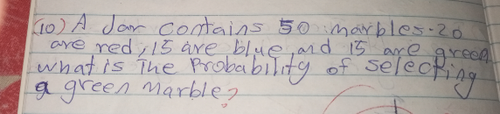 (10) A Jar contains 50 marbles. 20
are red, 15 are blue, and 15 are green
what is The Probability of selecting
a green marble?